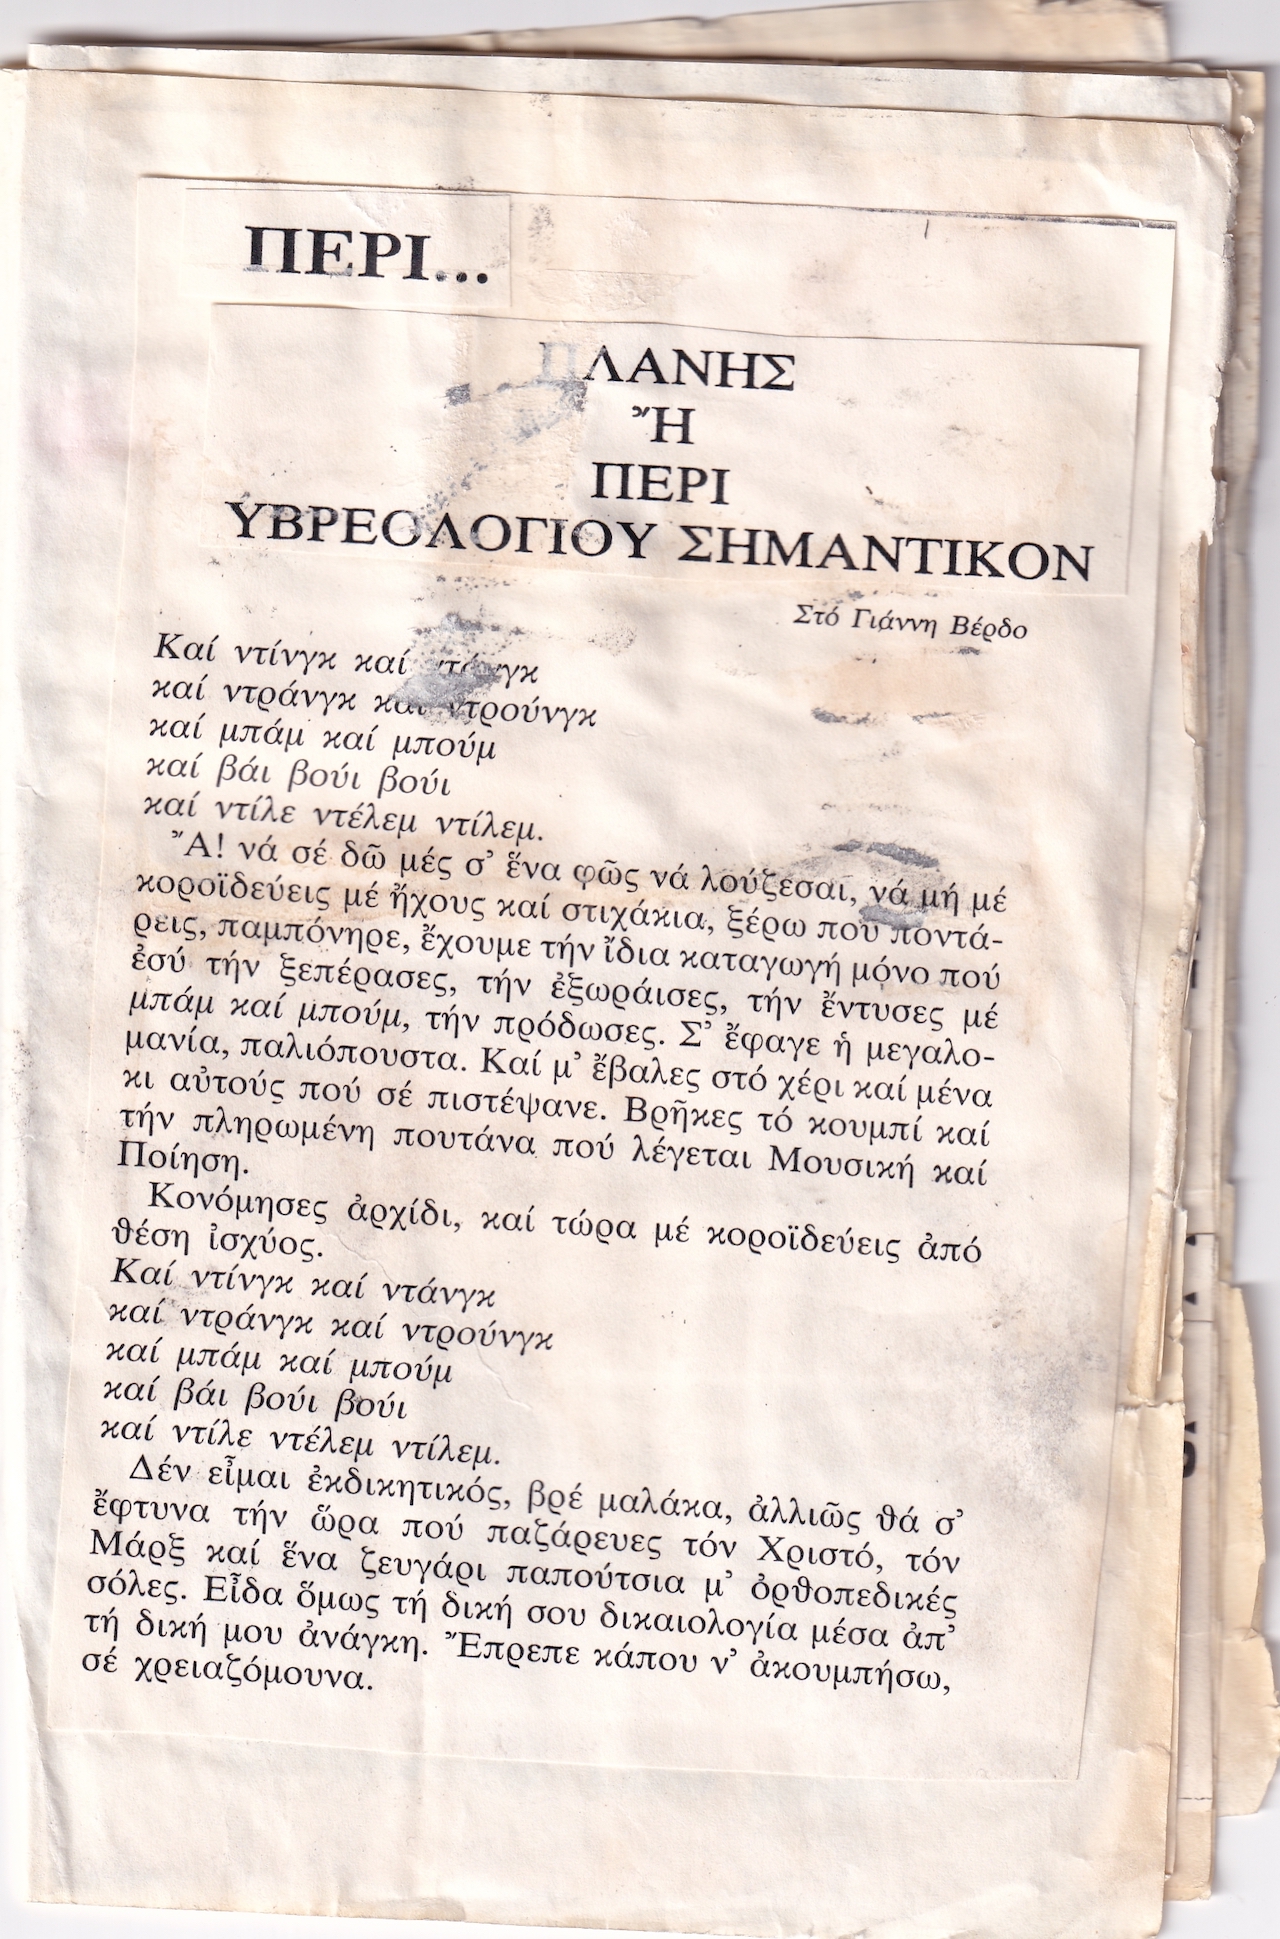 ΠΕΡΙ...
ΠΛΑΝΗΣ
Ἤ
ΠΕΡΙ
ΥΒΡΕΟΛΟΓΙΟΥ ΣΗΜΑΝΤΙΚΟΝ
Στό Γιάννη Βέρδο
Καί ντίνγκ καί ντάνγκ
καί ντράνγκ καί ντρούνγκ
καί μπάμ καί μπούμ
καί βάι βούι βούι
καί ντίλε ντέλεμ ντίλεμ.
Ἄ! νά σέ δῶ μές σ' ἕνα φῶς νά λούζεσαι, νά μή μέ
κοροϊδεύεις μέ ἤχους καί στιχάκια, ξέρω πού ποντά-
ρεις, παμπόνηρε, ἔχουμε τήν ἴδια καταγωγή μόνο πού
ἐσύ τήν ξεπέρασες, τήν ἐξωράισες, τήν ἔντυσες μέ
μπάμ καί μπούμ, τήν πρόδωσες. Σ' ἔφαγε ἡ μεγαλο-
μανία, παλιόπουστα. Καί μ' ἔβαλες στό χέρι καί μένα
κι αὐτούς πού σέ πιστέψανε. Βρῆκες τό κουμπί καί
τήν πληρωμένη πουτάνα πού λέγεται Μουσική καί
Ποίηση.
Κονόμησες ἀρχίδι, καί τώρα μέ κοροϊδεύεις ἀπό
θέση ἰσχύος.
Καί ντίνγκ καί ντάνγκ
καί ντράνγκ καί ντρούνγκ
καί μπάμ καί μπούμ
καί βάι βούι βούι
καί ντίλε ντέλεμ ντίλεμ.
Δέν εἶμαι ἐκδικητικός, βρέ μαλάκα, ἀλλιῶς θά σ'
ἔφτυνα τήν ὥρα πού παζάρευες τόν Χριστό, τόν
Μάρξ καί ἕνα ζευγάρι παπούτσια μ' ὀρθοπεδικές
σόλες. Εἶδα ὅμως τή δική σου δικαιολογία μέσα ἀπ'
τή δική μου ἀνάγκη. Ἔπρεπε κάπου ν' ἀκουμπήσω,
σέ χρειαζόμουνα.